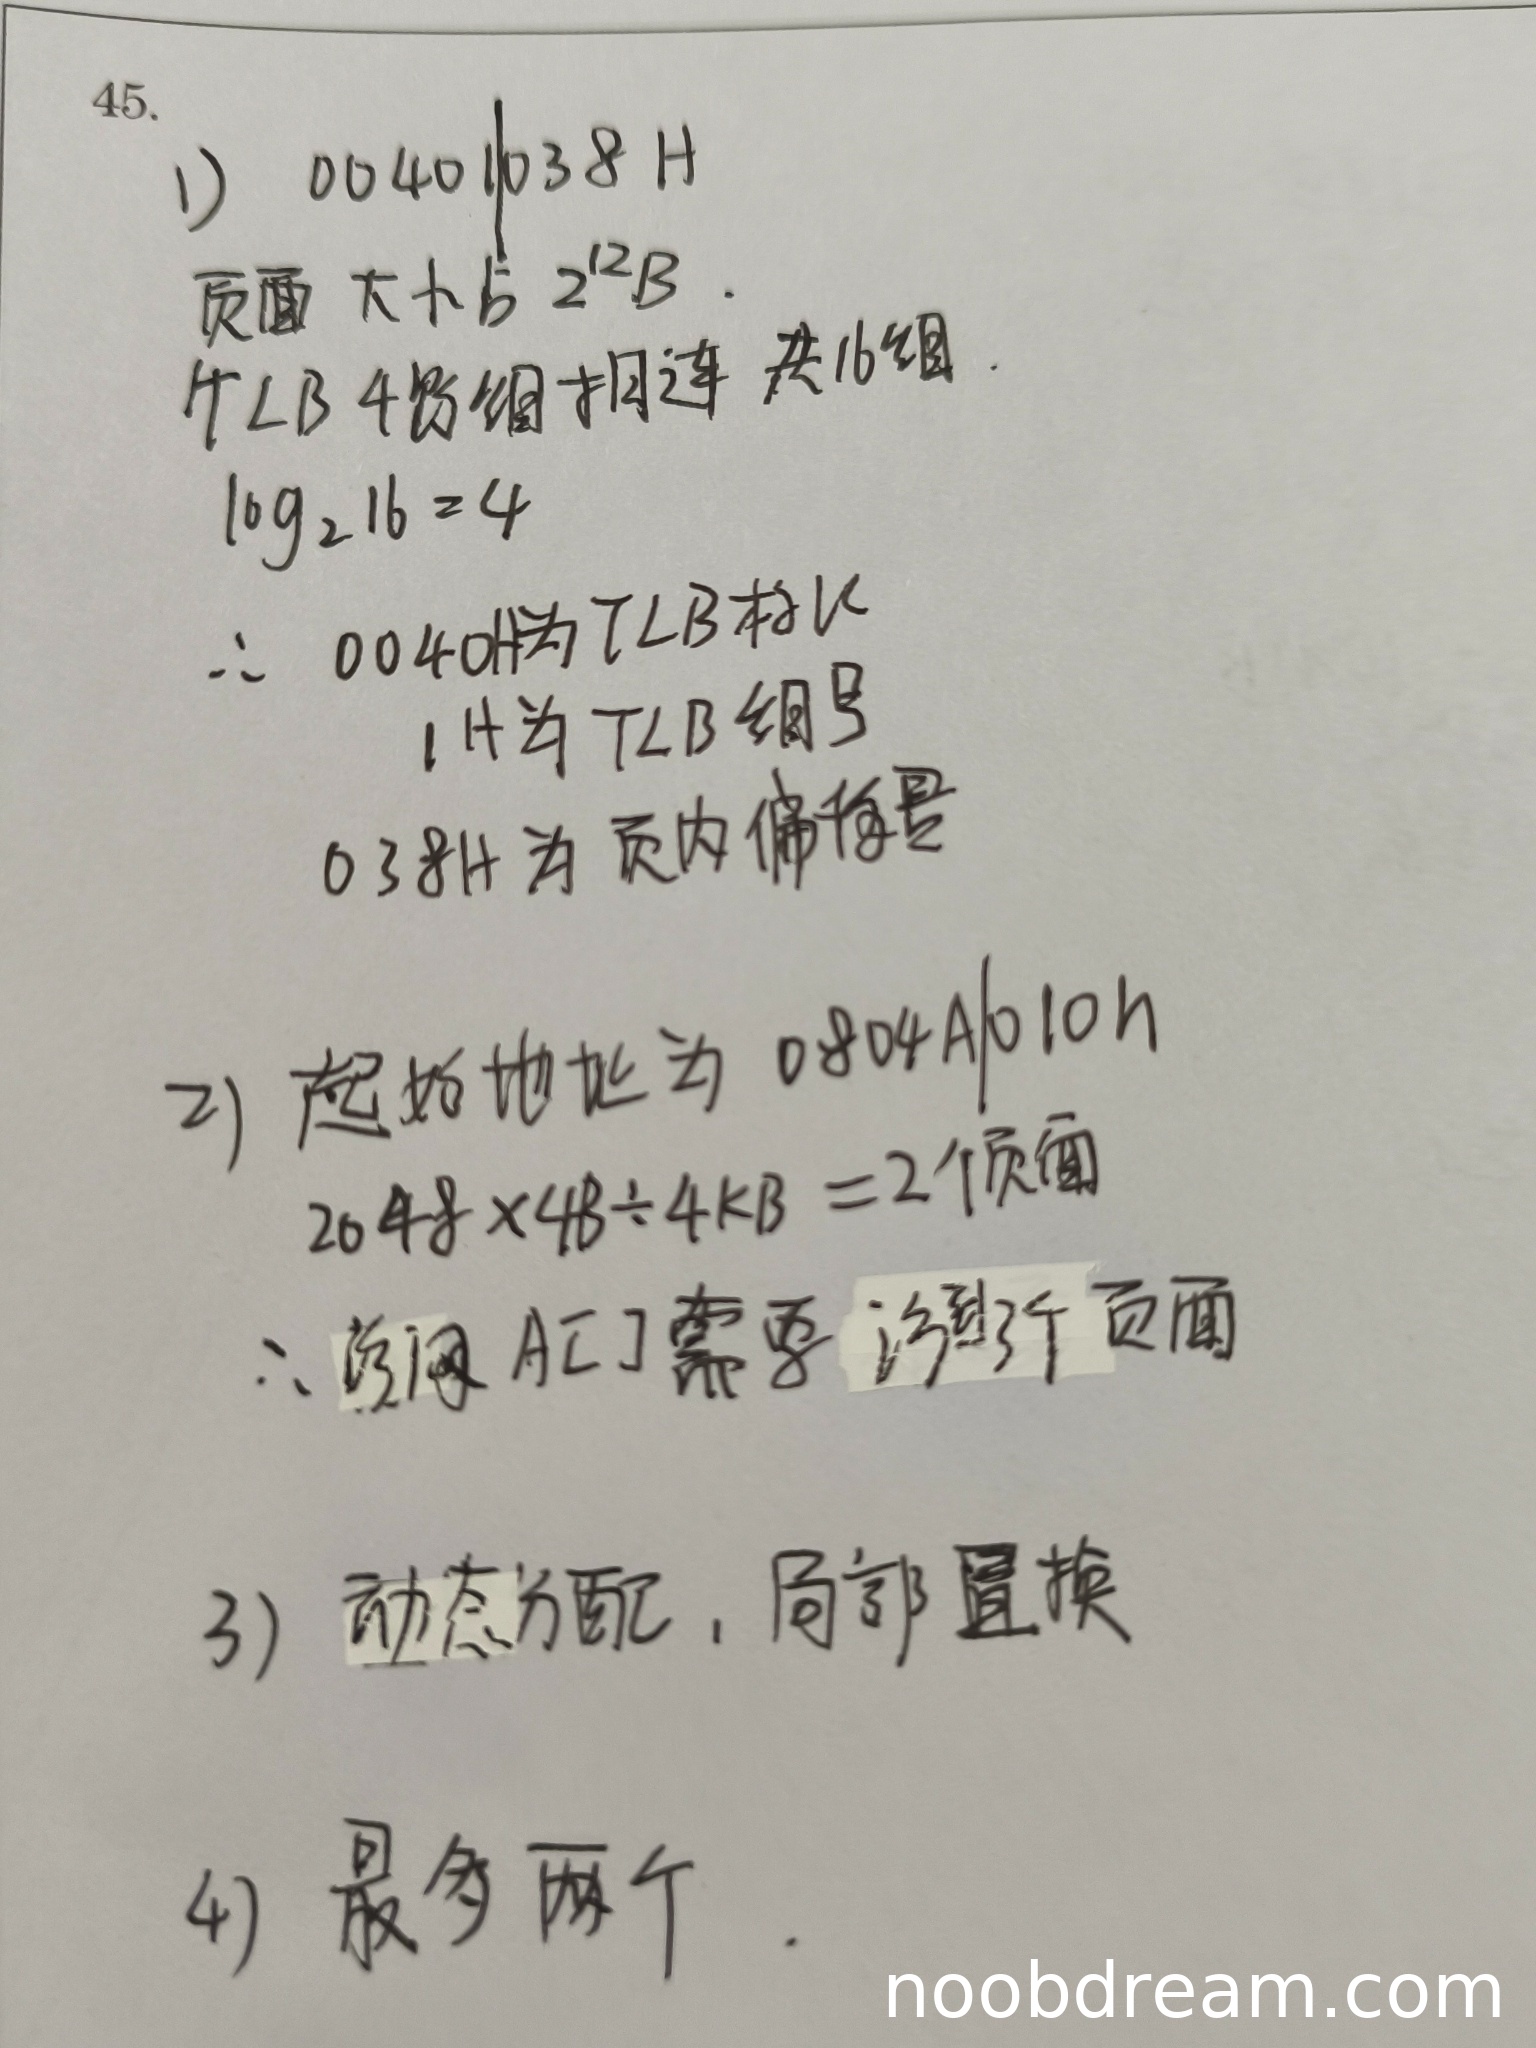 45.
1) 00401038H
页面大小为 2¹²B.
TLB 4路组相连 共16组.
log₂16=4
∴ 0040H为TLB标记
1H为TLB组号
038H为页内偏移量
2) 起始地址为 0804A010h
2048×4B÷4KB=2个页面
∴ 访问A[]需要涉到3个页面
3) 动态分配,局部置换
4) 最多两个.
noobdream.com